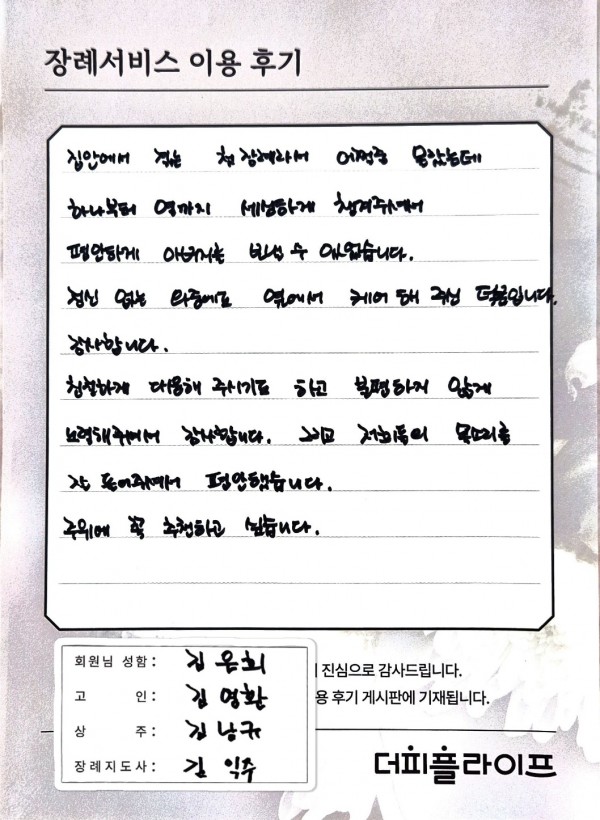 장례서비스 이용 후기
집안에서 겪는 첫 장례라서 어쩔줄 몰랐는데
하나부터 열까지 세심하게 챙겨주셔서
편안하게 아버지를 보낼 수 있었습니다.
정신 없는 와중에도 옆에서 케어 해 주신 덕분입니다.
감사합니다.
친절하게 대응해 주시기도 하고 불편하지 않게
노력해주셔서 감사합니다. 그리고 저희들의 목소리를
잘 들어주셔서 편안했습니다.
주위에 꼭 추천하고 싶습니다.
회원님 성함 : 김은희
진심으로 감사드립니다.
고 인 : 김영환
용 후기 게시판에 기재됩니다.
상 주 : 김남규
장례지도사 : 김익주
더피플라이프